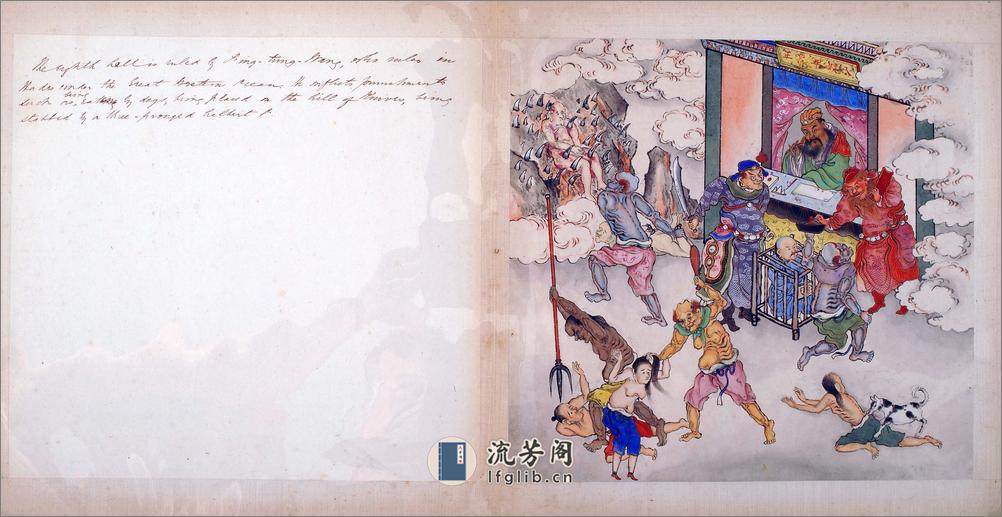 The eighth hell is ruled by who rules in
Hades under the Great Western Ocean. He inflicts punishments
such as, being eaten by dogs, being placed on the hill of Knives, being
stabbed by a three-pronged halbert
流芳阁
lfglib.cn